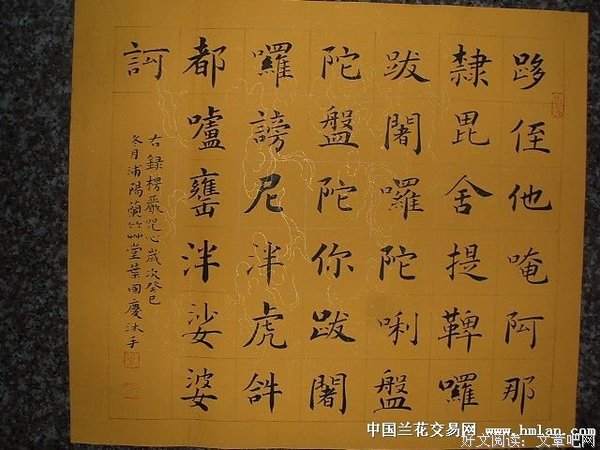 跢侄他唵阿那
隸毘舍提鞞囉
跋闍囉陀唎盤
陀盤陀你跋闍
囉謗尼泮虎
都嚧罋泮娑婆
訶
右録楞嚴咒心歲次癸巳
冬月浦陽蘭竹艸堂葉国慶沐手
中国兰花交易网 www.hmlan.com
好文阅读：文章吧网